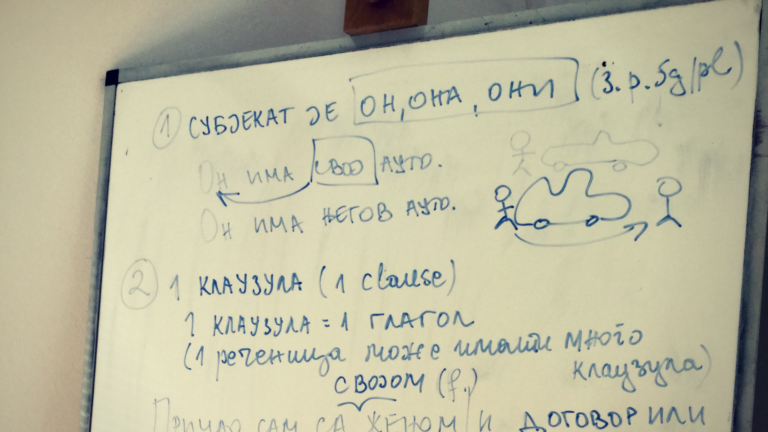 ① СУБЈЕКАТ ЈЕ ОН, ОНА, ОНИ (3. p. Sg/pl)
Он ИМА СВОЈ АУТО.
Он ИМА ЊЕГОВ АУТО.
② 1 КЛАУЗУЛА (1 clause)
1 КЛАУЗУЛА = 1 ГЛАГОЛ
(1 реченица може имати много клаузула)
СВОЈОМ (f.)
САМ СА ЖЕНОМ И ДОГОВОРИЛИ